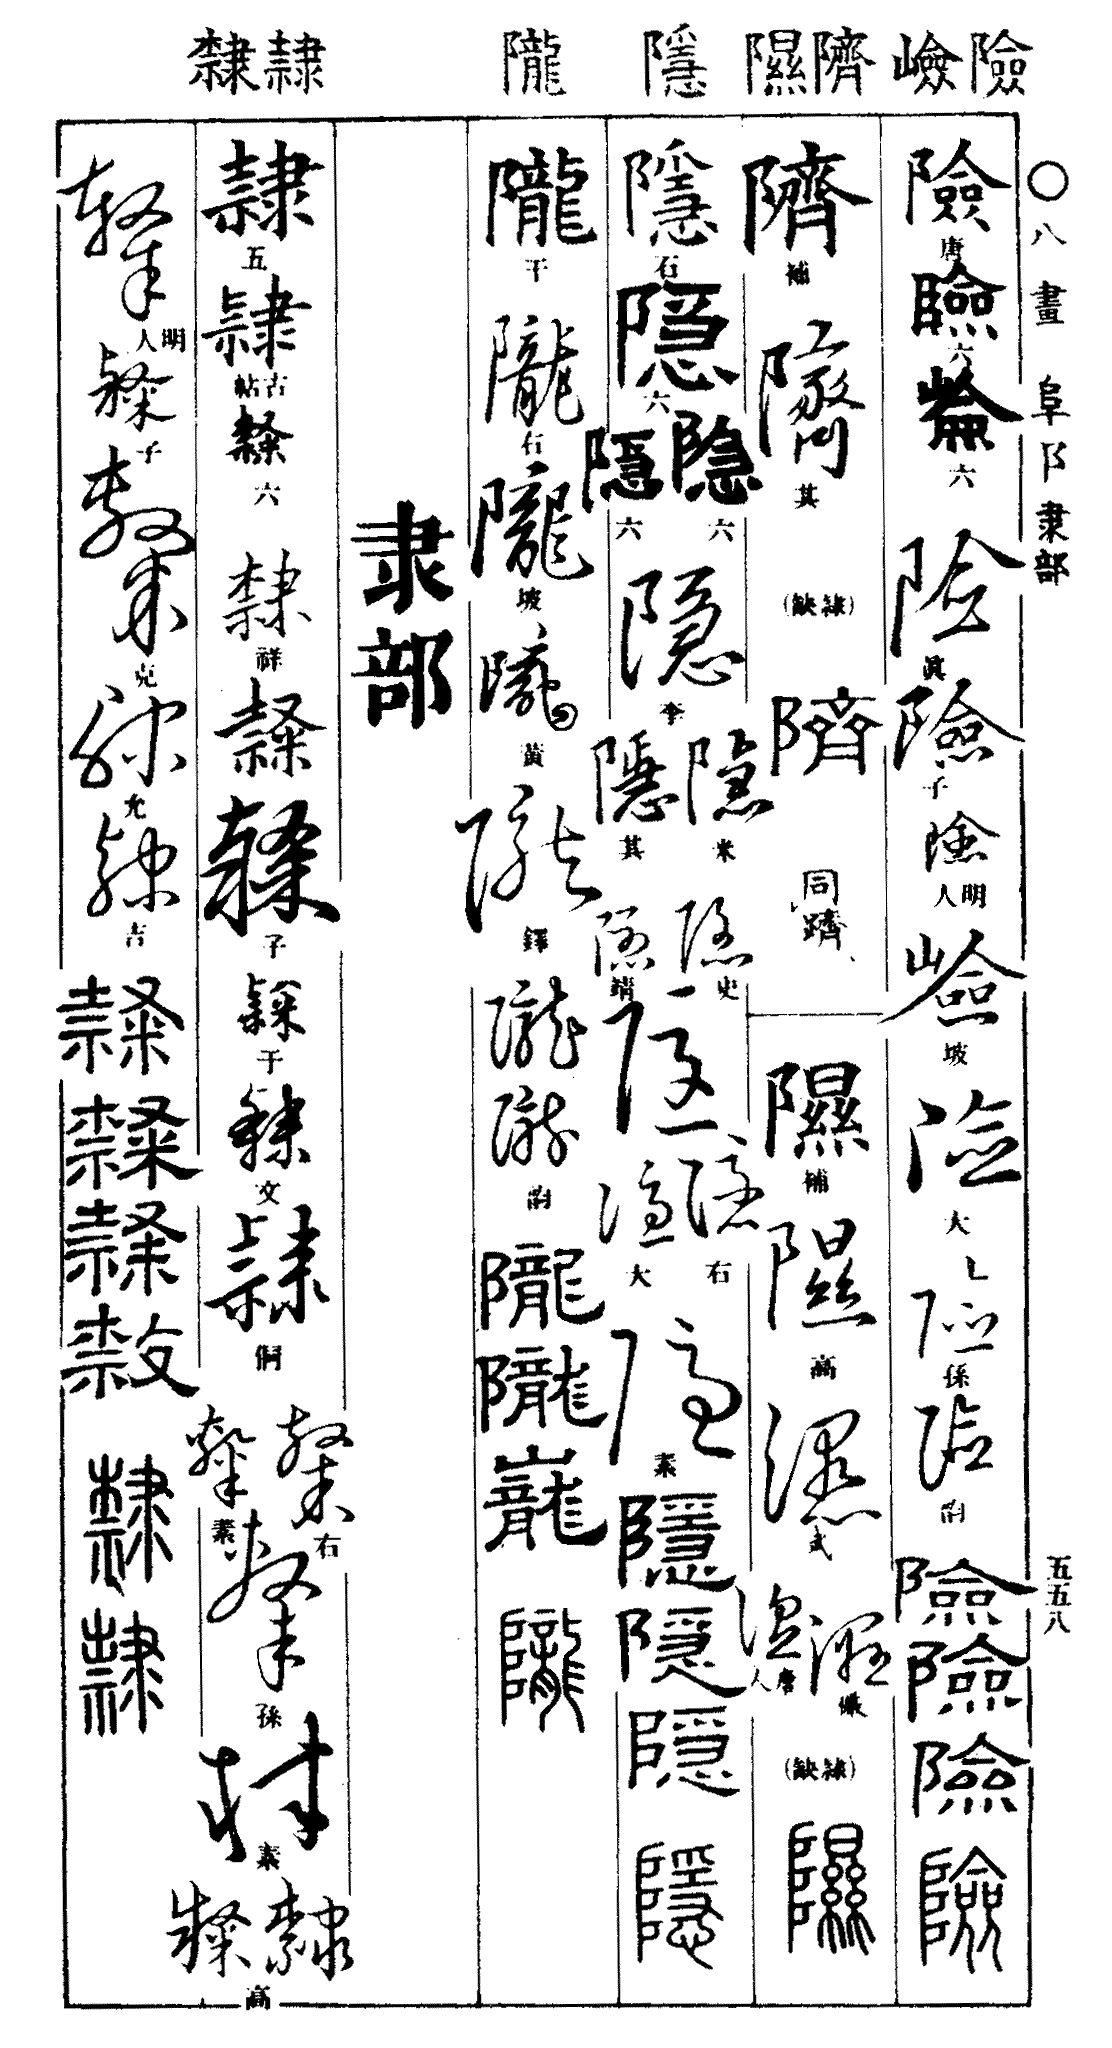 險 嶮
隮 隰
隱
隴
隸 𨽻
〇八畫 阜阝隶部
五五八
險 唐
險 六
六
險 眞
險 子
險 明人
嶮 坡
險 大
險 孫
險
險
險
險
險
隮 補
隮 其
(缺隸)
隮
同躋
隰 補
隰 高
隰 武
隰
隰 唐人
(缺隸)
隰
隱 石
隱 六
隱 六
隱 六
隱 李
隱 米
隱 其
隱 史
隱 靖
隱
隱 右
隱 大
隱 素
隱
隱
隱
隱
隴 干
隴 石
隴 坡
隴 黃
隴 鐸
隴
隴
隴
隴
隴
隴
隶部
隸 五
隸 古帖
隸 六
隸 祥
隸
隸 子
隸 干
隸 文
隸 侗
隸 右
隸 素
隸 孫
隸 素
隸
隸 高
隸 明人
隸 子
隸 克
隸 允
隸 吉
隸
隸
隸
隸
隸
隸